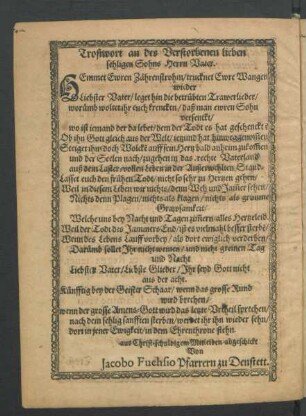 Trostwort an des Verstorbenen lieben
sehligen Sohns Herrn Vater.
HEmmet Ewren Zährenstrohm/ trucknet Ewre Wangen
wieder
Liebster Vater/ leget hin die betrübten Trawerlieder/
worümb wollet ihr euch krencken/ daß man ewren Sohn
versenckt/
wo ist iemand der da lebet/ dem der Todt es hat geschenckt?
Ob ihn Gott gleich aus der Welt/ ietzund hat hinweggenommen
Steiget ihm doch
und der Seelen nach/ zugehen in das rechte Vaterland
auß dem Laster-vollen Leben in der Außerwehlten Stand.
Lasset euch den frühen Todt/ nicht so sehr zu Hertzen gehen/
Weil in diesem Leben wir nichts/ denn Weh und Jam̃er sehen/
Nichts denn Plagen/ nichts als klagen/ nichts als grimme
Grawsamkeit/
Welche uns bey Nacht und Tagen
Weil der Todt des Jammers End/ ist es vielmahl besser sterben/
Wenn des Lebens Lauff vorbey/ als dort ewiglich verderben/
Darümb sollet Ihr nicht weinen/ und nicht greinen Tag
und Nacht
Liebsten Vater/ Glieder/ Ihr seyd Gott nicht
aus der acht.
Künfftig bey der Geister Schaar/ wenn das grosse Rund
wird brechen/
wenn der grosse Gott wird das letzte Urtheil sprechen/
nach dem sehlig sanfften sterben/ werdet ihr ihn wieder sehn/
dort in jener Ewigkeit/ in dem Ehrenthrone stehn.
aus Christ-schuldigem Mitleiden abgeschickt
Von
Jacobo Fuchsio Pfarrern zu Denstett.